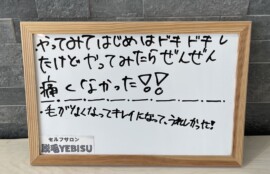 やってみてはじめはドキドキし
たけどやってみたらぜんぜん
痛くなかった!!
・毛がなくなってキレイになって、うれしかった!
セルフサロン
脱毛YEBISU